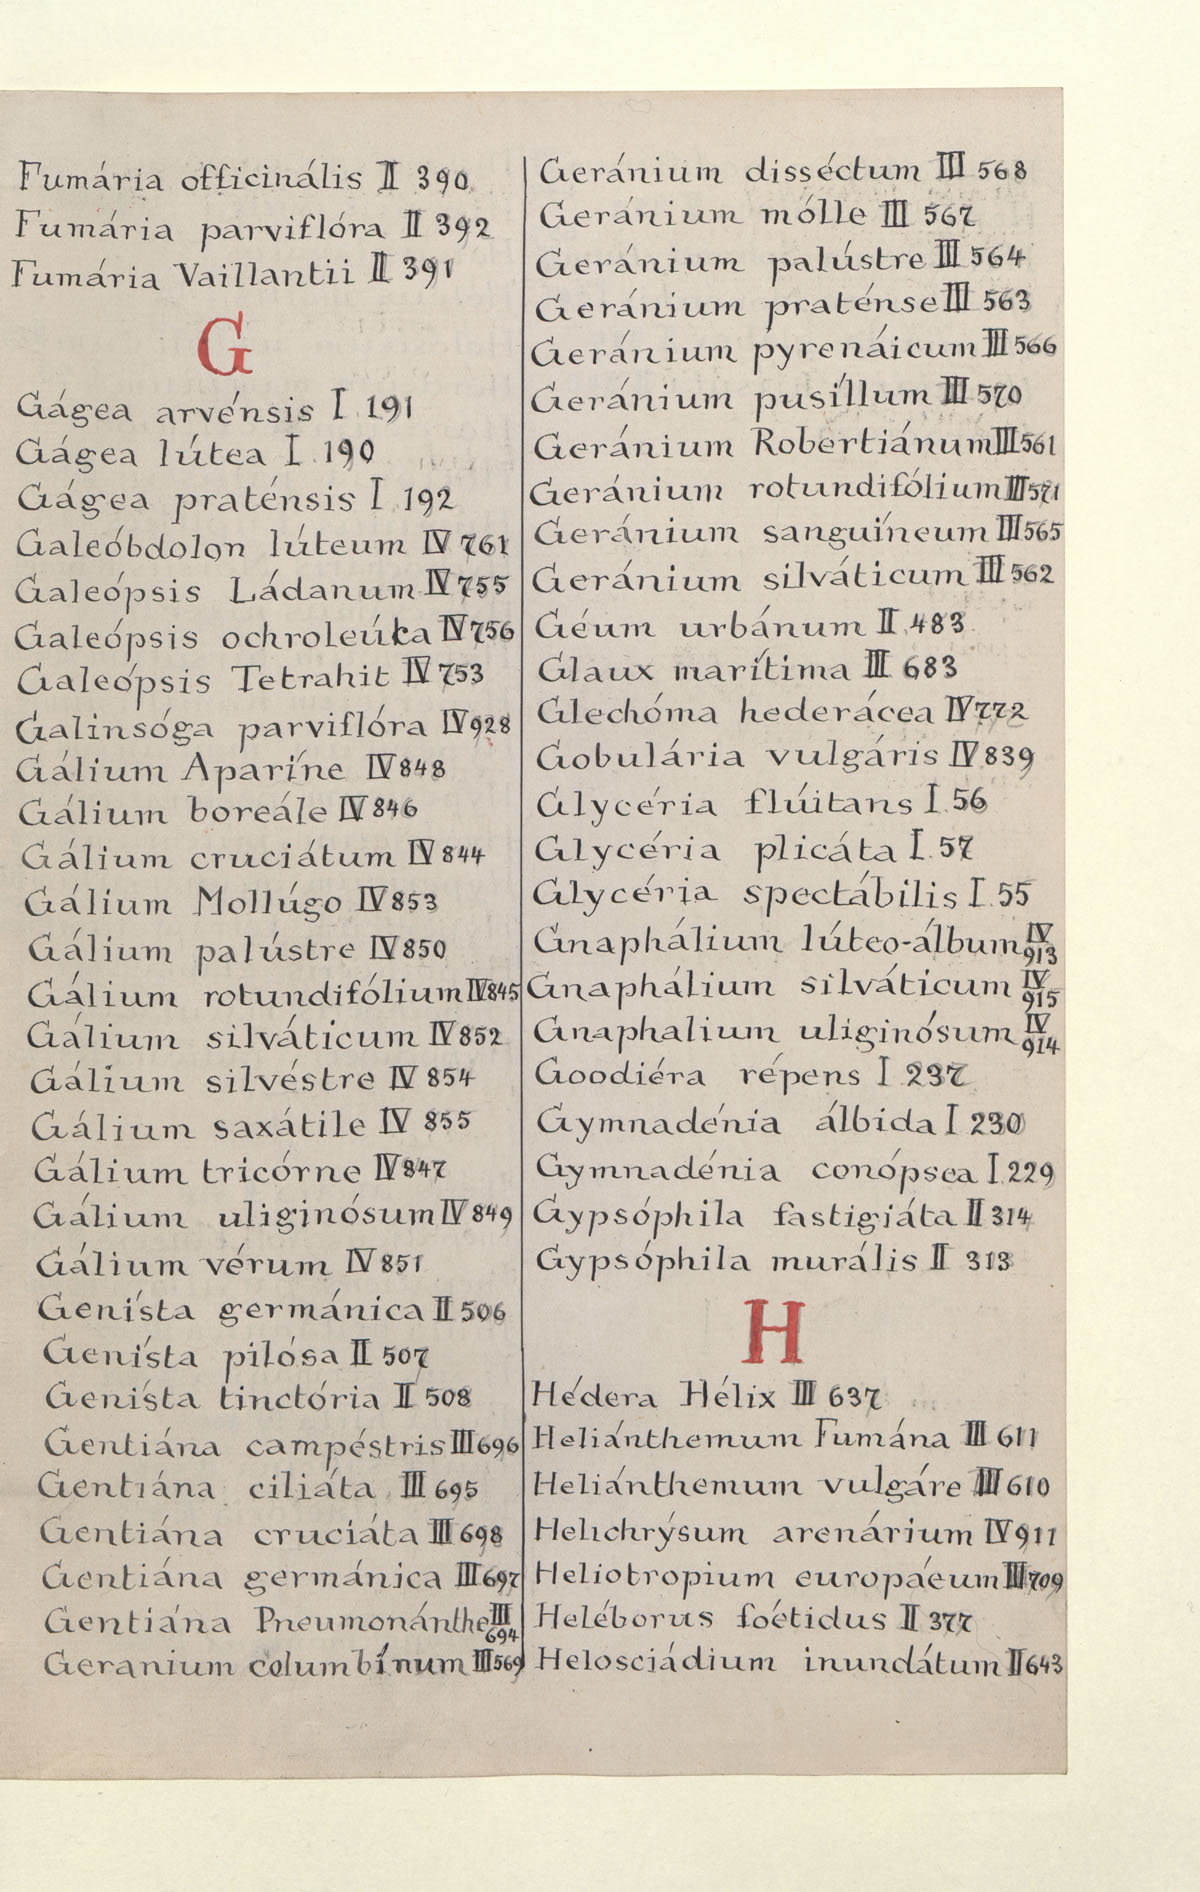 Fumária officinális II 390
Fumária parviflóra II 392
Fumária Vaillantii II 391
G
Gágea arvénsis I 191
Gágea lútea I 190
Gágea praténsis I 192
Galeóbdolon lúteum IV 761
Galeópsis Ládanum IV 755
Galeópsis ochroleúka IV 756
Galeópsis Tetrahit IV 753
Galinsóga parviflóra IV 928
Gálium Aparíne IV 848
Gálium boreále IV 846
Gálium cruciátum IV 844
Gálium Mollúgo IV 853
Gálium palústre IV 850
Gálium rotundifólium IV 845
Gálium silváticum IV 852
Gálium silvéstre IV 854
Gálium saxátile IV 855
Gálium tricórne IV 847
Gálium uliginósum IV 849
Gálium vérum IV 851
Genísta germánica II 506
Genísta pilósa II 507
Genísta tinctória II 508
Gentiána campéstris III 696
Gentiána ciliáta III 695
Gentiána cruciáta III 698
Gentiána germánica III 697
Gentiána Pneumonánthe III 694
Geranium columbínum III 569
Geránium disséctum III 568
Geránium mólle III 567
Geránium palústre III 564
Geránium praténse III 563
Geránium pyrenáicum III 566
Geránium pusíllum III 570
Geránium Robertiánum III 561
Geránium rotundifólium III 571
Geránium sanguíneum III 565
Geránium silváticum III 562
Géum urbánum II 483
Glaux marítima III 683
Glechóma hederácea IV 772
Gobulária vulgáris IV 839
Glycéria flúitans I 56
Glycéria plicáta I 57
Glycéria spectábilis I 55
Gnaphálium lúteo-álbum IV 913
Gnaphálium silváticum IV 915
Gnaphalium uliginósum IV 914
Goodiéra répens I 237
Gymnadénia álbida I 230
Gymnadénia conópsea I 229
Gypsóphila fastigiáta II 314
Gypsóphila murális II 313
H
Hédera Hélix III 637
Heliánthemum Fumána III 611
Heliánthemum vulgáre III 610
Helichrýsum arenárium IV 911
Heliotropium európáeum III 709
Heléborus foétidus II 377
Helosciádium inundátum II 643